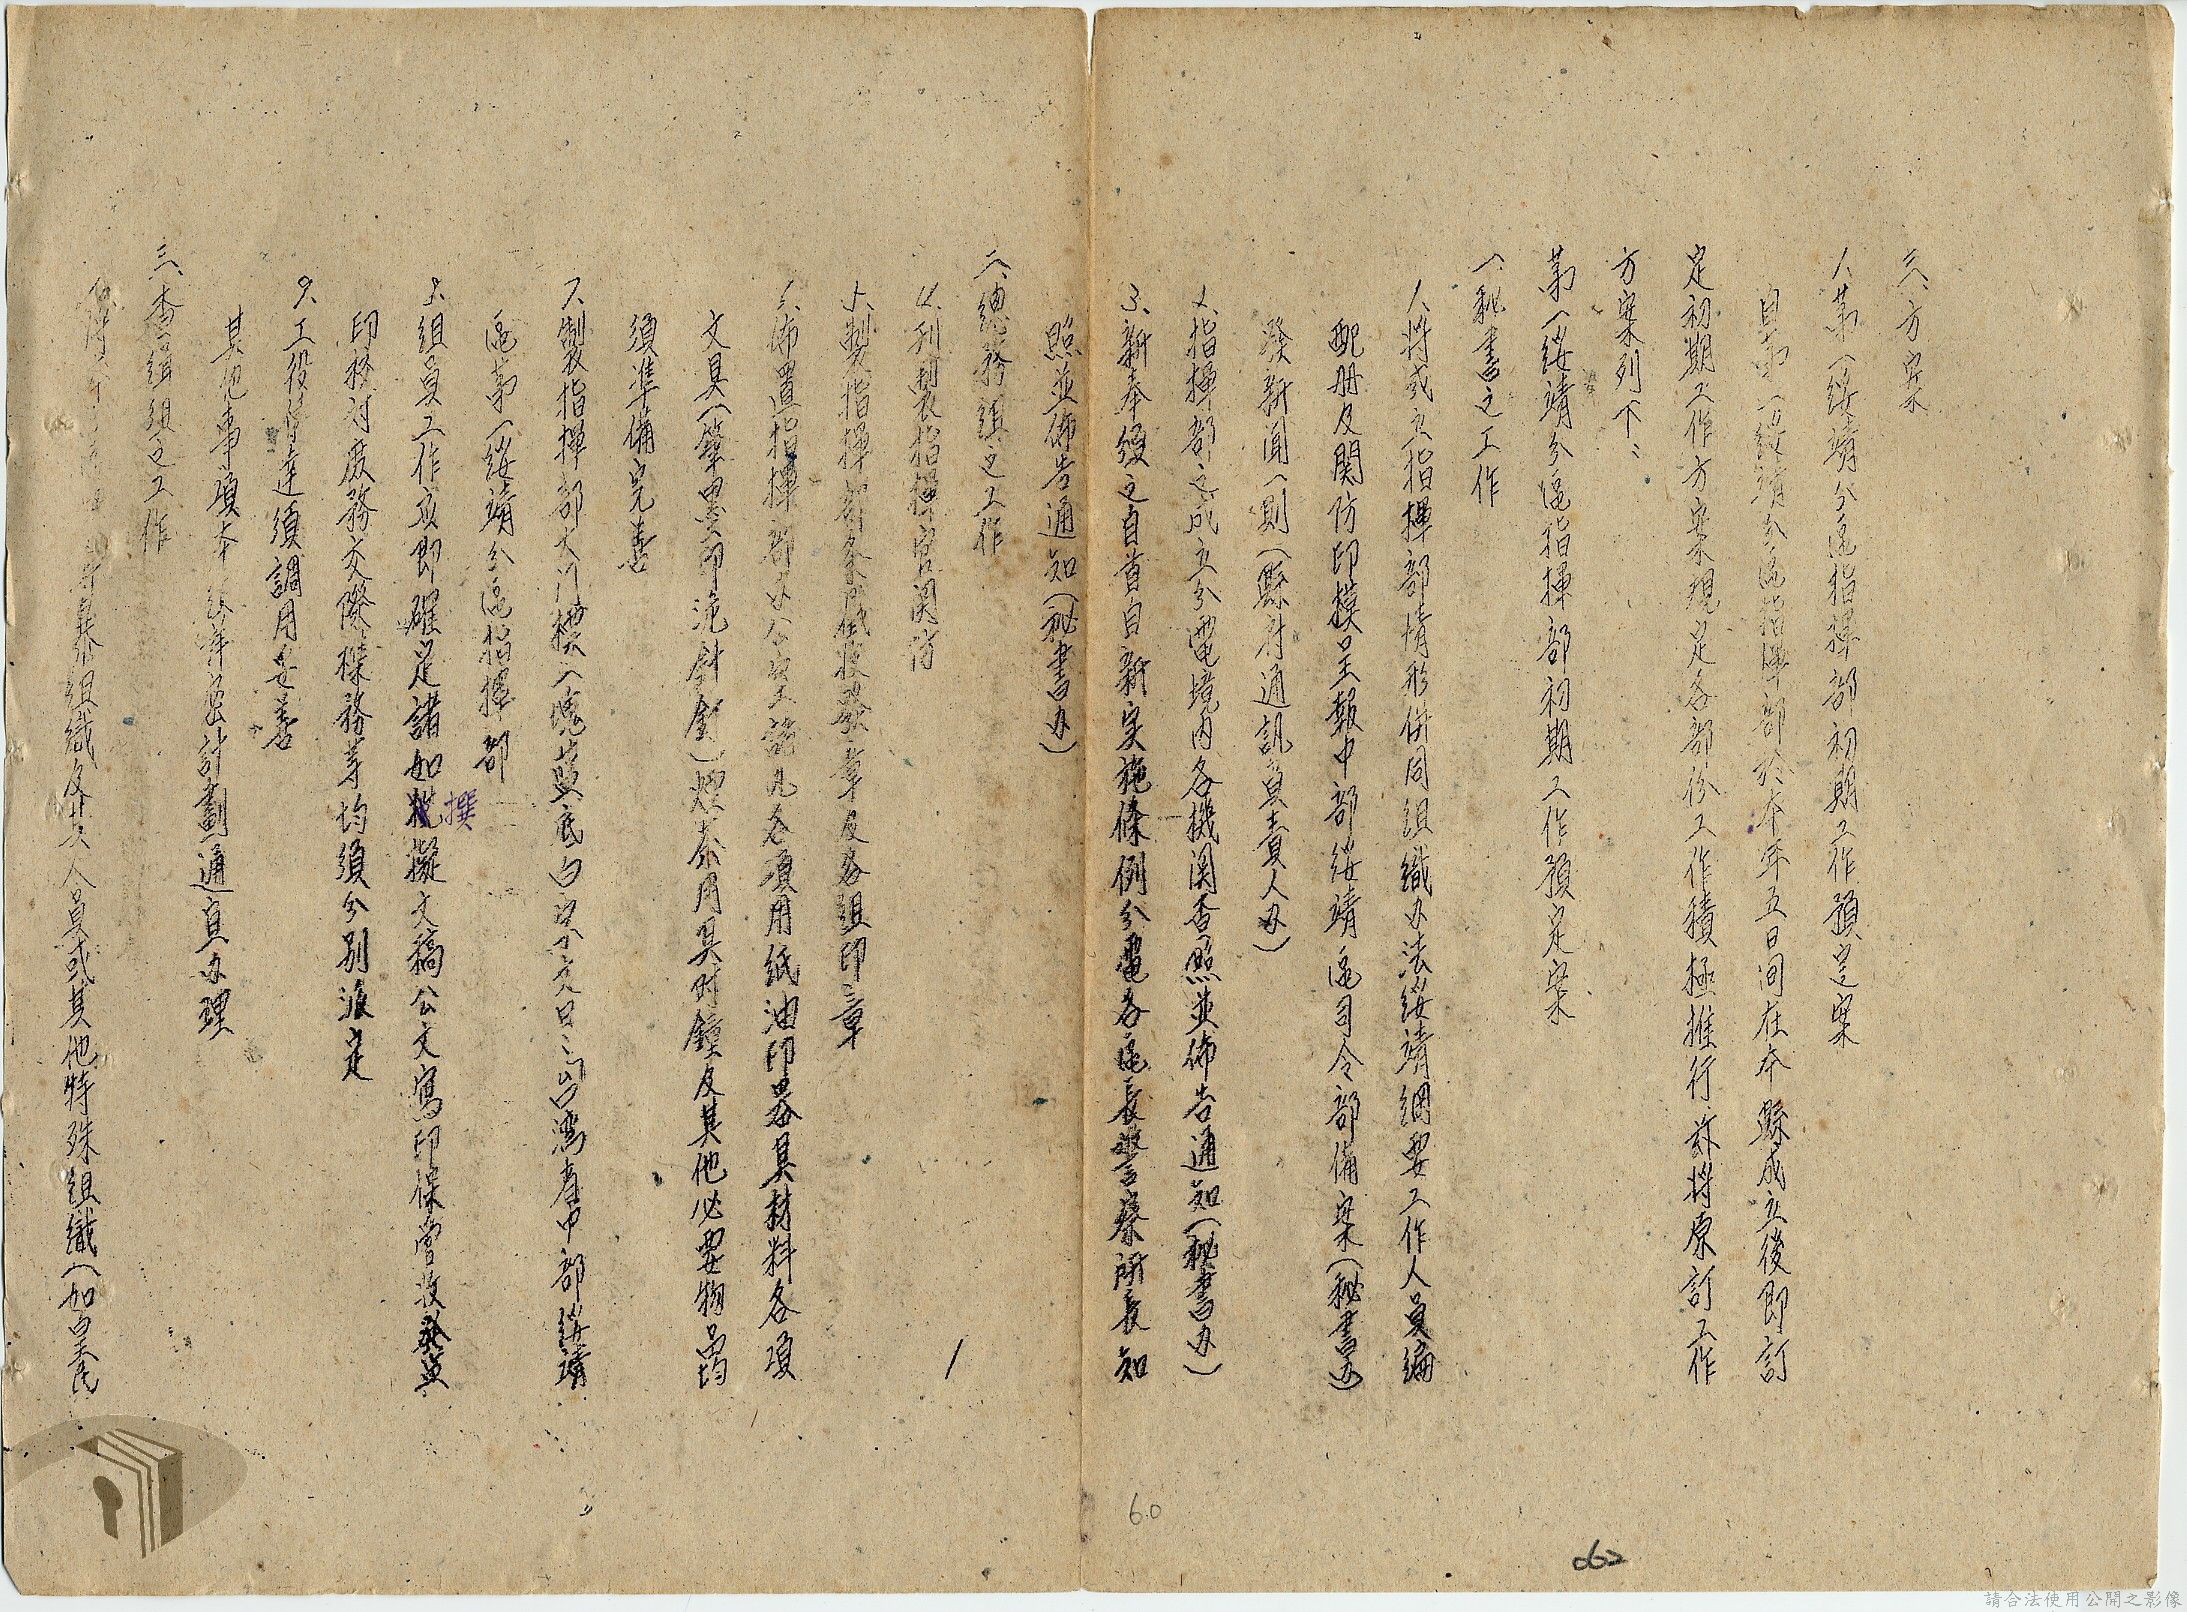 三、方案
1、第一綏靖分區指揮部初期工作預定案
自第一綏靖分區指揮部於本年五日間在本縣成立後即訂
定初期工作方案規定各部份工作積極推行茲將原訂工作
方案列下：
第一綏靖分區指揮部初期工作預定案
一、秘書之工作
1、將成立指揮部情形併同組織办法綏靖綱要工作人員編
配册及関防印模呈報中部綏靖區司令部備案（秘書办）
發新聞一則（縣府通訊負責人办）
2、指揮部之成立分電境內各機関查照並佈告通知（秘書办）
3、新奉頒之自首自新实施條例分電各區長警察所長知
照並佈告通知（秘書办）
二、總務組之工作
4、刊製指揮官関防
5、製指揮部条戳校對章及各組印章
6、佈置指揮部办公室凡各項用紙油印器具材料各項
文具（筆墨印泥針釘）煙茶用具时鐘及其他必要物品均
須準備完善
7、製指揮部大门標一塊藍底白字文曰：台灣省中部綏靖
區第一綏靖分區指揮部
8、組員工作立即確定諸如撰擬文稿公文寫印保管收發並
印移付庶務交際襍務等均須分別派定
9、工役傳達須調用妥善
其他事項本組詳密計劃通宜办理
三、查緝組之工作
暴組織及其人員或其他特殊組織（如皇民
60
062
請合法使用公開之影像